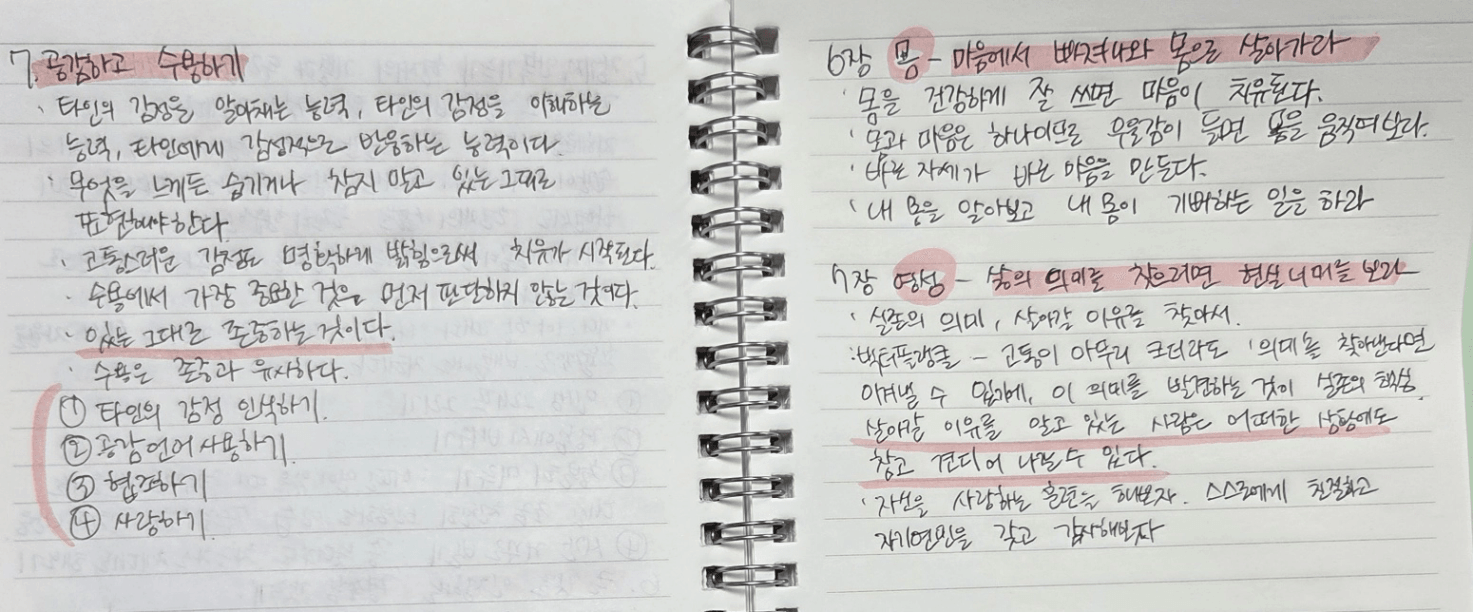 7. 공감하고 수용하기
· 타인의 감정을 알아채는 능력, 타인의 감정을 이해하는
능력, 타인에게 감성적으로 반응하는 능력이다.
· 무엇을 느끼든 숨기거나 참지 말고 있는 그대로
표현해야한다.
· 고통스러운 감정도 명확하게 밝힘으로써 치유가 시작된다.
· 수용에서 가장 중요한 것은 먼저 판단하지 않는 것이다.
있는 그대로 존중하는 것이다.
· 수용은 존중과 유사하다.
① 타인의 감정 인식하기.
② 공감언어 사용하기.
③ 협조하기
④ 사랑하기.
6장 몸 - 마음에서 빠져나와 몸으로 살아가라
· 몸을 건강하게 잘 쓰면 마음이 치유된다.
· 몸과 마음은 하나이므로 우울감이 들면 몸을 움직여보라.
· 바른 자세가 바른 마음을 만든다.
· 내 몸을 알아보고 내 몸이 기뻐하는 일을 하라
7장 영성 - 삶의 의미를 찾으려면 현실 너머를 보라
· 실존의 의미, 살아갈 이유를 찾아서.
: 빅터프랭클 - 고통이 아무리 크더라도 '의미'를 찾아낸다면
이겨낼 수 있기에, 이 의미를 발견하는 것이 실존의 핵심.
살아갈 이유를 알고 있는 사람은 어떠한 상황에도
참고 견디어 나갈 수 있다.
· 자신을 사랑하는 훈련을 해보자. 스스로에게 친절하고
자기연민을 갖고 감사해보자